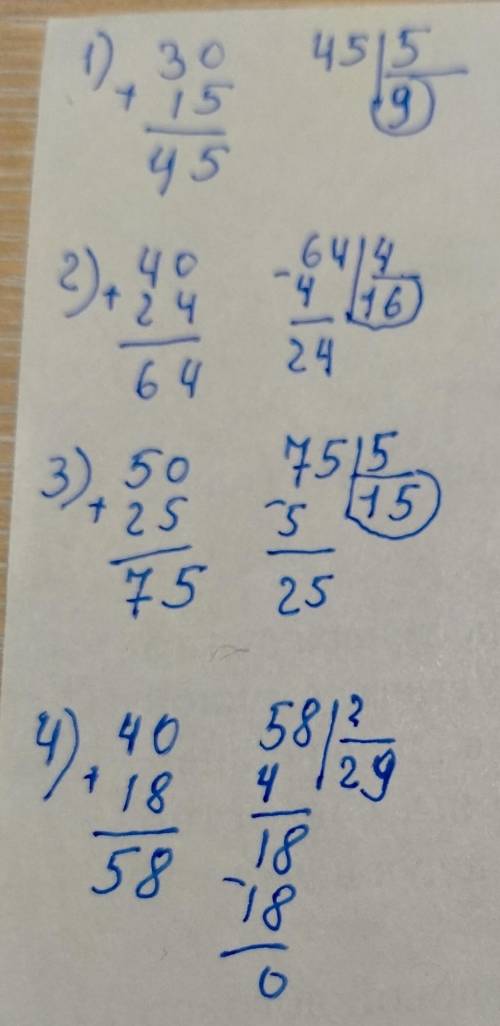 1) 30 45 | 5
+ 15 9
45
2) 40 - 64 | 4
+ 24 4 16
64 24
3) 50 75 | 5
+ 25 - 5 15
75 25
4) 40 58 | 2
+ 18 4 29
58 18
- 18
0